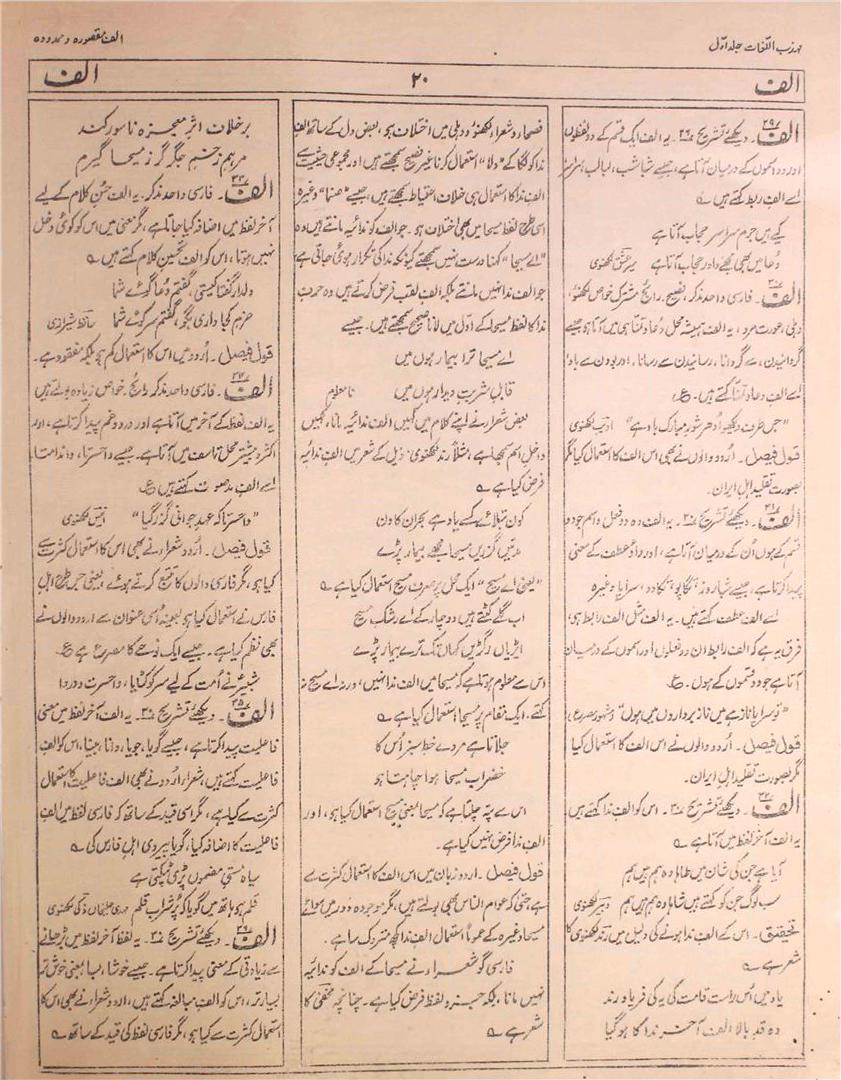 مہذب اللغات جلد اوّل
الف مقصورہ و ممدودہ
الف
۲۰
الف
الف ۲۹ ۔ دیکھئے تشریح ۲۶ ۔ یہ الف ایک قسم کے دو لفظوں
اور دو اسموں کے درمیان آتا ہے، جیسے شباشب، لبالب، سراسر
اسے الفِ ربط کہتے ہیں
کیے ہیں جرم سراسر حجاب آتا ہے
دُعا میں بھی مجھے داور حجاب آتا ہے میر عشق لکھنوی
الف ۳۰ ۔ فارسی واحد مذکر، فصیح، رائج مشترک خواص لکھنؤ،
دہلی، عورت مرد، یہ الف ہمیشہ محل دُعا و تمنا ہی میں آتا ہو جیسے
گردانیدن، سے گردانا، رسانیدن سے رسانا، اور بودن سے بادا
اسے الف دعا و تمنا کہتے ہیں۔ ع
"جس طرف دیکھیو اُدھر شور مبارک باد ہے" ادب لکھنوی
قول فیصل۔ اُردو والوں نے بھی اس الف کا استعمال کیا مگر
بصورت تقلید اہل ایران۔
الف ۳۱ ۔ دیکھئے تشریح ۳۰ ۔ یہ الف دہ دو فعل و اسم جو دو
قسم کے ہوں اُن کے درمیان آتا ہے، اور واؤ عطف کے معنی
پیدا کرتا ہے، جیسے شباروز، تگاپو، تگادو، سراپا وغیرہ
اسے الف عطف کہتے ہیں۔ یہ الف مثل الف رابط ہی
فرق یہ ہے کہ الف رابط ان دو فعلوں اور اسموں کے درمیان
آتا ہے جو دو قسموں کے ہوں۔ ع
"تو سراپا ناز ہے میں ناز برداروں میں ہوں" (مشہور مصرع)
قول فیصل۔ اُردو والوں نے اس الف کا استعمال کیا
مگر بصورت تقلید اہل ایران۔
الف ۳۲ ۔ دیکھئے تشریح ۳۰ ۔ اس کو الف ندا کہتے ہیں۔
یہ الف آخر لفظ میں آتا ہے
آیا ہے جن کی شان میں طاہا وہ ہم ہیں ہم
سب لوگ جن کو کہتے ہیں شاہا وہ ہم ہیں ہم دبیر لکھنوی
تحقیق۔ اس کے الف ندا ہونے کی دلیل میں رند لکھنوی کا
شعر ہے
یاد میں اُس راست قامت کی یہ کی فریاد رند
وہ قدِ بالا الف آخر ندا کا ہو گیا
فصحاء و شعراء لکھنؤ و دہلی میں اختلاف ہو، بعض دل کے ساتھ الف
ندا کو لگا کے "دلا" استعمال کرنا غیر فصیح سمجھتے ہیں اور مجموعی حیثیت سے
الف ندا کا استعمال ہی خلاف احتیاط سمجھتے ہیں، جیسے "صنما" وغیرہ
اسی طرح لفظ مسیحا میں بھی اختلاف ہو۔ جو الف کو ندائیہ مانتے ہیں وہ
"اے مسیحا" کہنا درست نہیں سمجھتے کیونکہ ندا کی تکرار ہوئی جاتی ہے
جو الف ندا نہیں مانتے بلکہ الف لقب فرض کرتے ہیں وہ حرف
ندا کا لفظ مسیحا کے اوّل میں لانا صحیح سمجھتے ہیں۔ جیسے
اے مسیحا ترا بیمار ہوں میں
قابل شربتِ دیدار ہوں میں نامعلوم
بعض شعراء نے اپنے کلام میں کہیں الف ندائیہ مانا، کہیں
داخل اسم سمجھا ہے، مثلاً رند لکھنوی ذیل کے شعر میں الف ندائیہ
فرض کیا ہے
کون تبلائے کسے یاد ہے بحران کا دن
مدتیں گزریں مسیحا مجھے بیمار پڑے
"یعنی اے مسیح" ایک محل پر صرف مسیح استعمال کیا ہے
اب گلے کٹتے ہیں دو چار کے اے رشک مسیح
ایڑیاں رگڑیں کہاں تک ترے بیمار پڑے
اس سے معلوم ہوتا ہے کہ مسیحا میں الف ندا نہیں، ورنہ اے مسیح نہ
کہتے۔ ایک مقام پر مسیحا استعمال کیا ہے
جلاتا ہے مردے خط سبز اُس کا
خضر اب مسیحا ہوا چاہتا ہو
اس سے پتہ چلتا ہے کہ مسیحا بمعنی مسیح استعمال کیا ہو، اور
الف ندا فرض نہیں کیا ہے۔
قول فیصل۔ اردو زبان میں اس الف کا استعمال کثرت سے
ہے حتیٰ کہ عوام الناس بھی بولتے ہیں، مگر موجودہ دور میں سوائے
مسیحا وغیرہ کے عموماً استعمال الف ندا کچھ متروک سا ہے۔
فارسی گو شعراء نے مسیحا کے الف کو ندائیہ
نہیں مانا، بلکہ جزو لفظ فرض کیا ہے۔ چنانچہ مخفی کا
شعر ہے
برخلاف اثرِ معجزہ ناسور کند
مرہم زخم جگر گر ز مسیحا گیرم
الف ۳۳ ۔ فارسی واحد مذکر۔ یہ الف حُسنِ کلام کے لیے
آخر لفظ میں اضافہ کیا جاتا ہے، مگر معنی میں اس کو کوئی دخل
نہیں ہوتا، اس کو الف تحسین کلام کہتے ہیں
دلدار گفتا کیستی، گفتم دُعا گوئے شما
حزم کجا داری بگو، گفتم سر کوئے شما حافظ شیرازی
قول فیصل۔ اُردو میں اس کا استعمال کم ہو بلکہ مفقود ہے۔
الف ۳۴ ۔ فارسی واحد مذکر رائج۔ خواص زیادہ بولتے ہیں
یہ الف لفظ کے آخر میں آتا ہے اور درد و غم پیدا کرتا ہے، اور
اکثر و بیشتر محل تاسف میں آتا ہے۔ جیسے واحسرتا، واندامتا،
اسے الف مدصوت کہتے ہیں ع
"واحسرتا کہ عہدِ جوانی گزر گیا" انیس لکھنوی
قول فیصل۔ اُردو شعراء نے بھی اس کا استعمال کثرت سے
کیا ہو، مگر فارسی والوں کا تتبع کرتے ہوئے، یعنی جس طرح اہل
فارس نے استعمال کیا ہو بعینہ اُسی عنوان سے اردو والوں نے
بھی نظم کیا ہے۔ جیسے ایک نوحے کا مصرع ہے ع
شبیرؑ نے اُمت کے لیے سر کو کٹایا، واحسرت و دردا
الف ۳۵ ۔ دیکھئے تشریح ۳۰ ۔ یہ الف آخر لفظ میں معنی
فاعلیت پیدا کرتا ہے، جیسے گویا، جویا، دانا، بینا، اس کو الف
فاعلیت کہتے ہیں، شعراء اُردو نے بھی الف فاعلیت کا استعمال
کثرت سے کیا ہے، مگر اسی قید کے ساتھ کہ فارسی لفظ میں الف
فاعلیت کا اضافہ کیا، گویا پیروی اہل فارس کی
سیاہ مستیِ مضموں پڑی ٹپکتی ہے
قلم ہو ہاتھ میں گویا کہ پُر شراب قلم مہدی علیخاں ذکی لکھنوی
الف ۳۶ ۔ دیکھئے تشریح ۳۰ ۔ یہ لفظ آخر لفظ میں بڑھانے
سے زیادتی کے معنی پیدا کرتا ہے۔ جیسے خوشا، بسا بمعنی خوش تر
بسیار تر، اس کو الف مبالغہ کہتے ہیں، اردو شعراء نے بھی اس کا
استعمال کثرت سے کیا ہو، مگر فارسی لفظ کی قید کے ساتھ